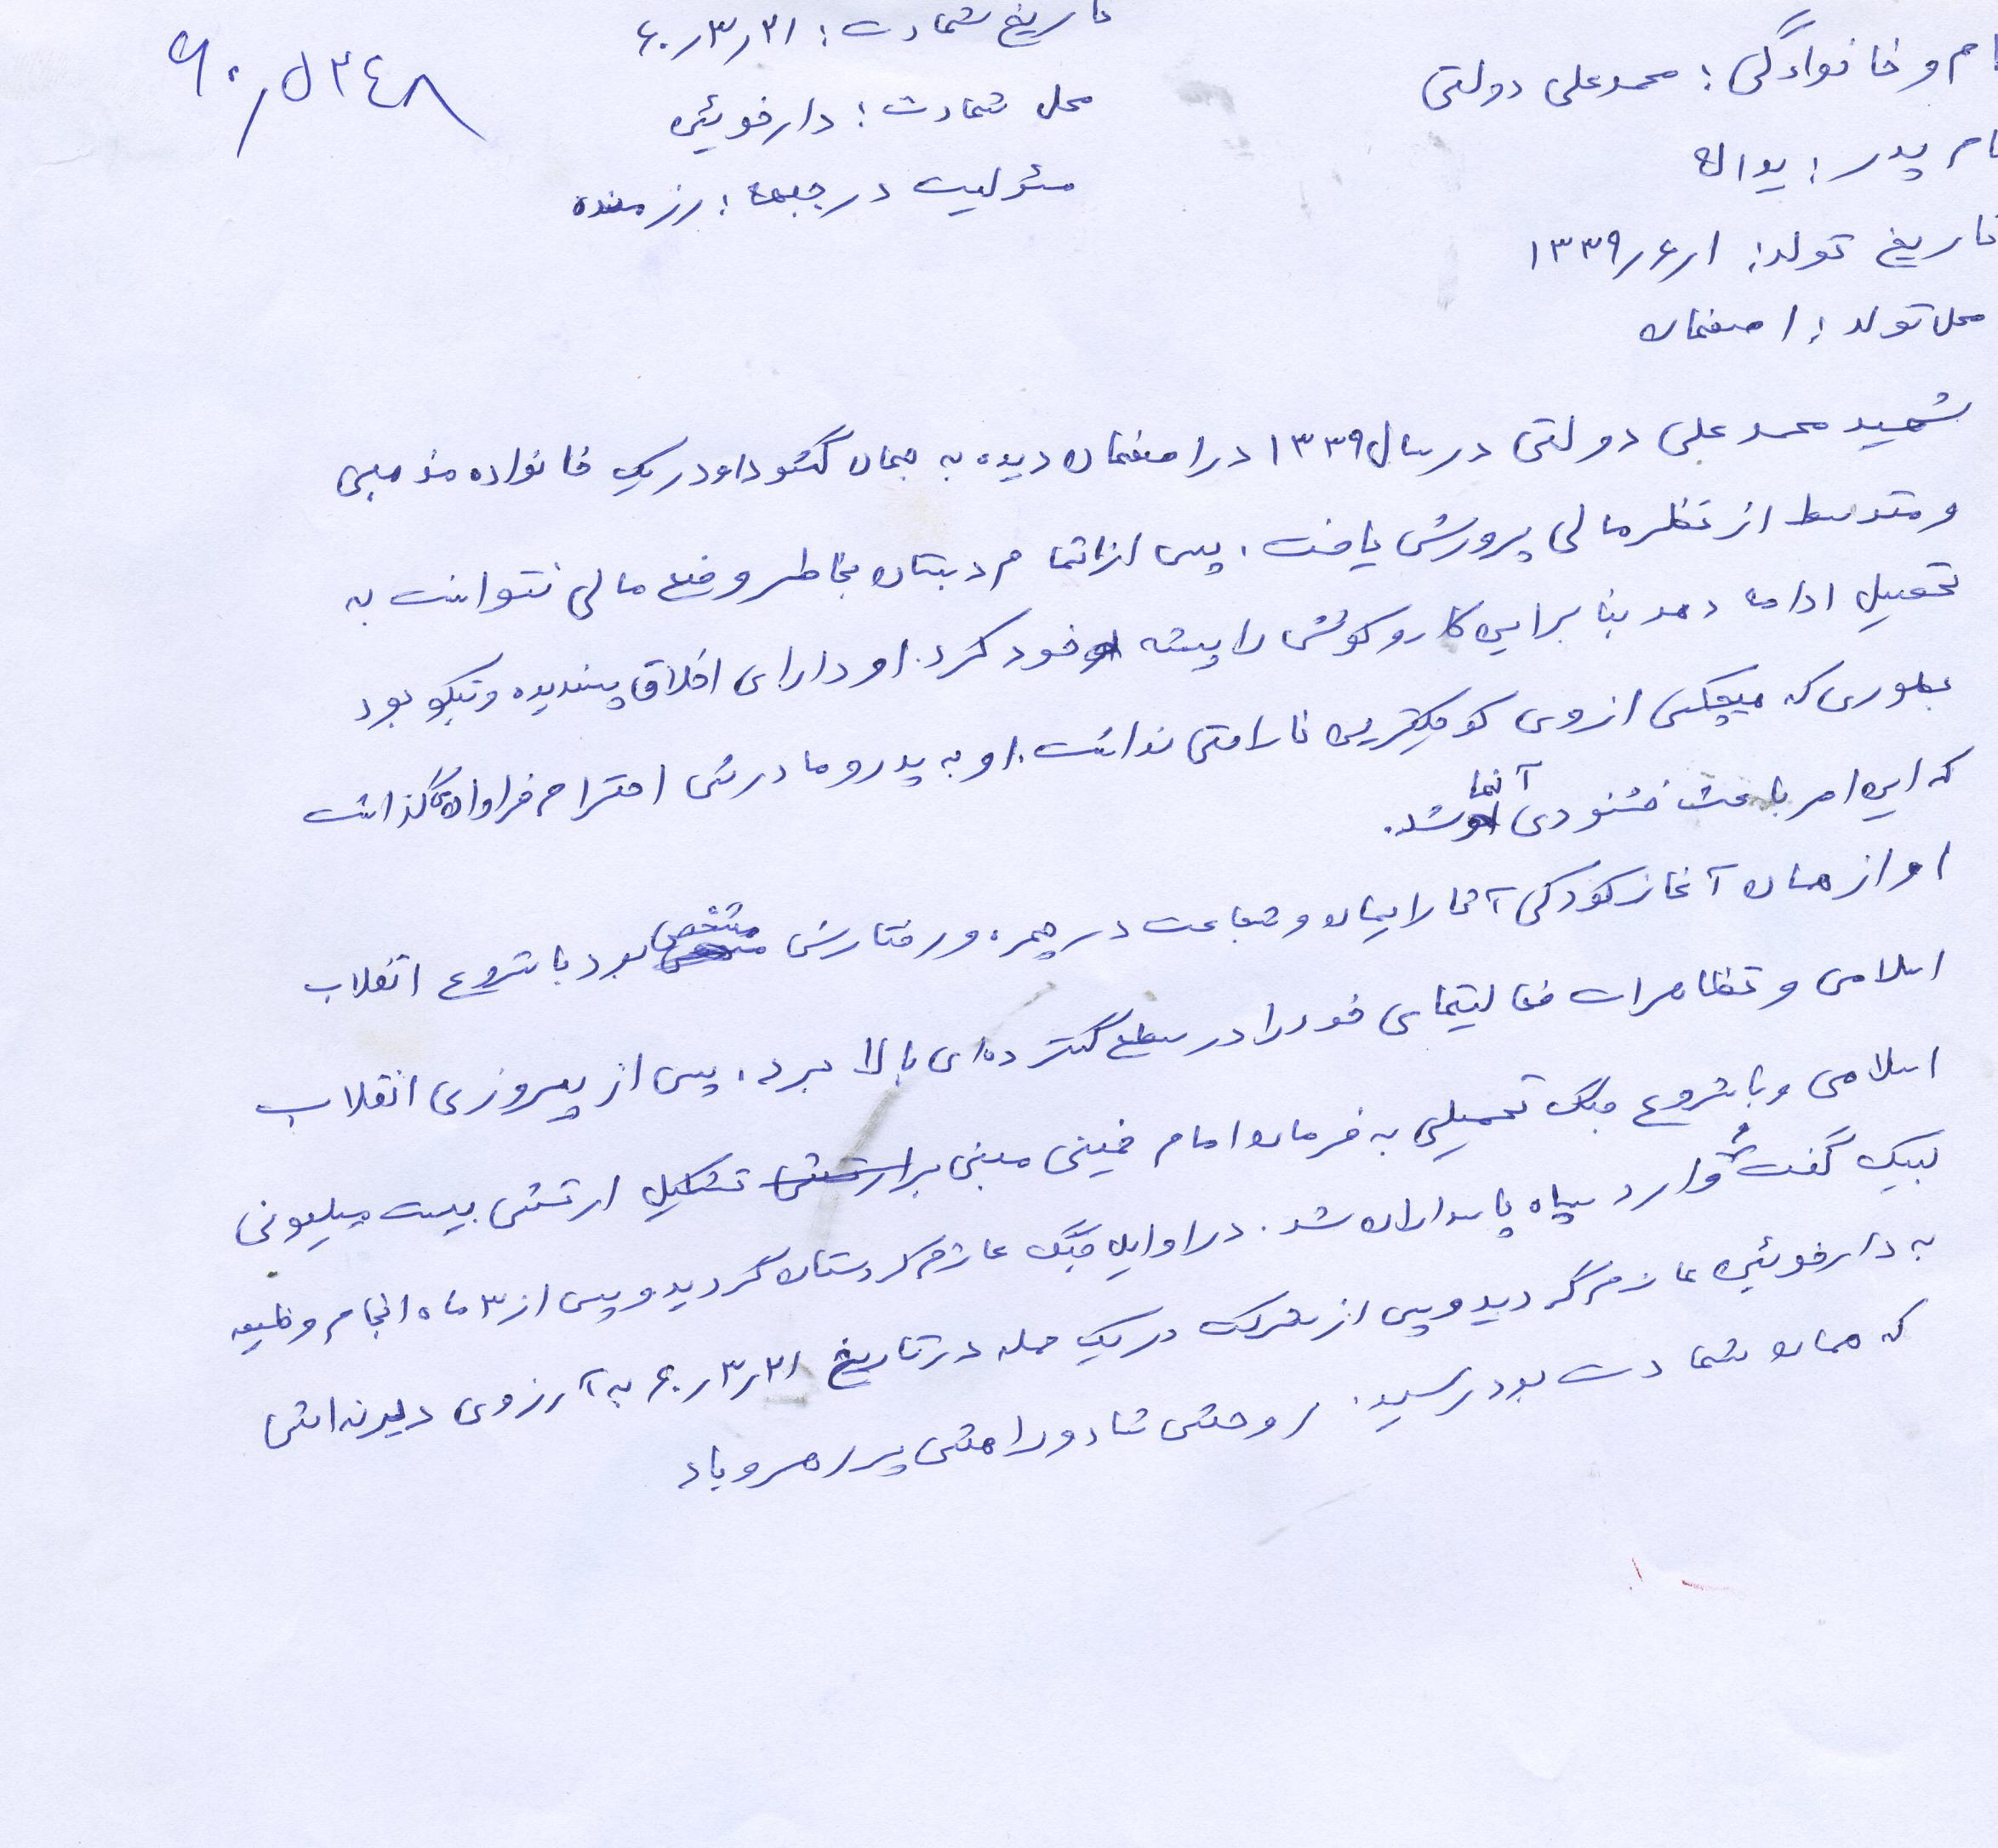 نام و خانوادگی: محمدعلی دولتی
نام پدر: یداله
تاریخ تولد: ۱۳۳۹٫۶٫۱
محل تولد: اصفهان
تاریخ شهادت: ۶۰٫۳٫۲۱
محل شهادت: دارخوئین
مسئولیت در جبهه: رزمنده
شهید محمدعلی دولتی در سال ۱۳۳۹ در اصفهان دیده به جهان گشود او در یک خانواده مذهبی
و متوسط از نظر مالی پرورش یافت. پس از اتمام دبستان بخاطر وضع مالی نتوانست به
تحصیل ادامه دهد بنابراین کار و کوشش را پیشه خود کرد. او دارای اخلاق پسندیده و نیکو بود
بطوری که هیچکس از وی کوچکترین ناراحتی نداشت. او به پدر و مادرش احترام فراوان گذاشت
که این امر باعث خشنودی آنها شد.
او از همان آغاز کودکی آثار ایمان و شجاعت در چهره و رفتارش مشخص بود با شروع انقلاب
اسلامی و تظاهرات فعالیتهای خود را در سطح گسترده‌ای بالا برد. پس از پیروزی انقلاب
اسلامی و با شروع جنگ تحمیلی به فرمان امام خمینی مبنی بر ارتشی تشکیل ارتشی بیست میلیونی
لبیک گفت و وارد سپاه پاسداران شد. در اوایل جنگ عازم کردستان گردید و پس از ۳ ماه انجام وظیفه
به دارخوئین عازم گردید و پس از تحرک در یک حمله در تاریخ ۶۰٫۳٫۲۱ به آرزوی دیرینه‌اش
که همان شهادت بود رسید. روحش شاد و راهش پر رهرو باد